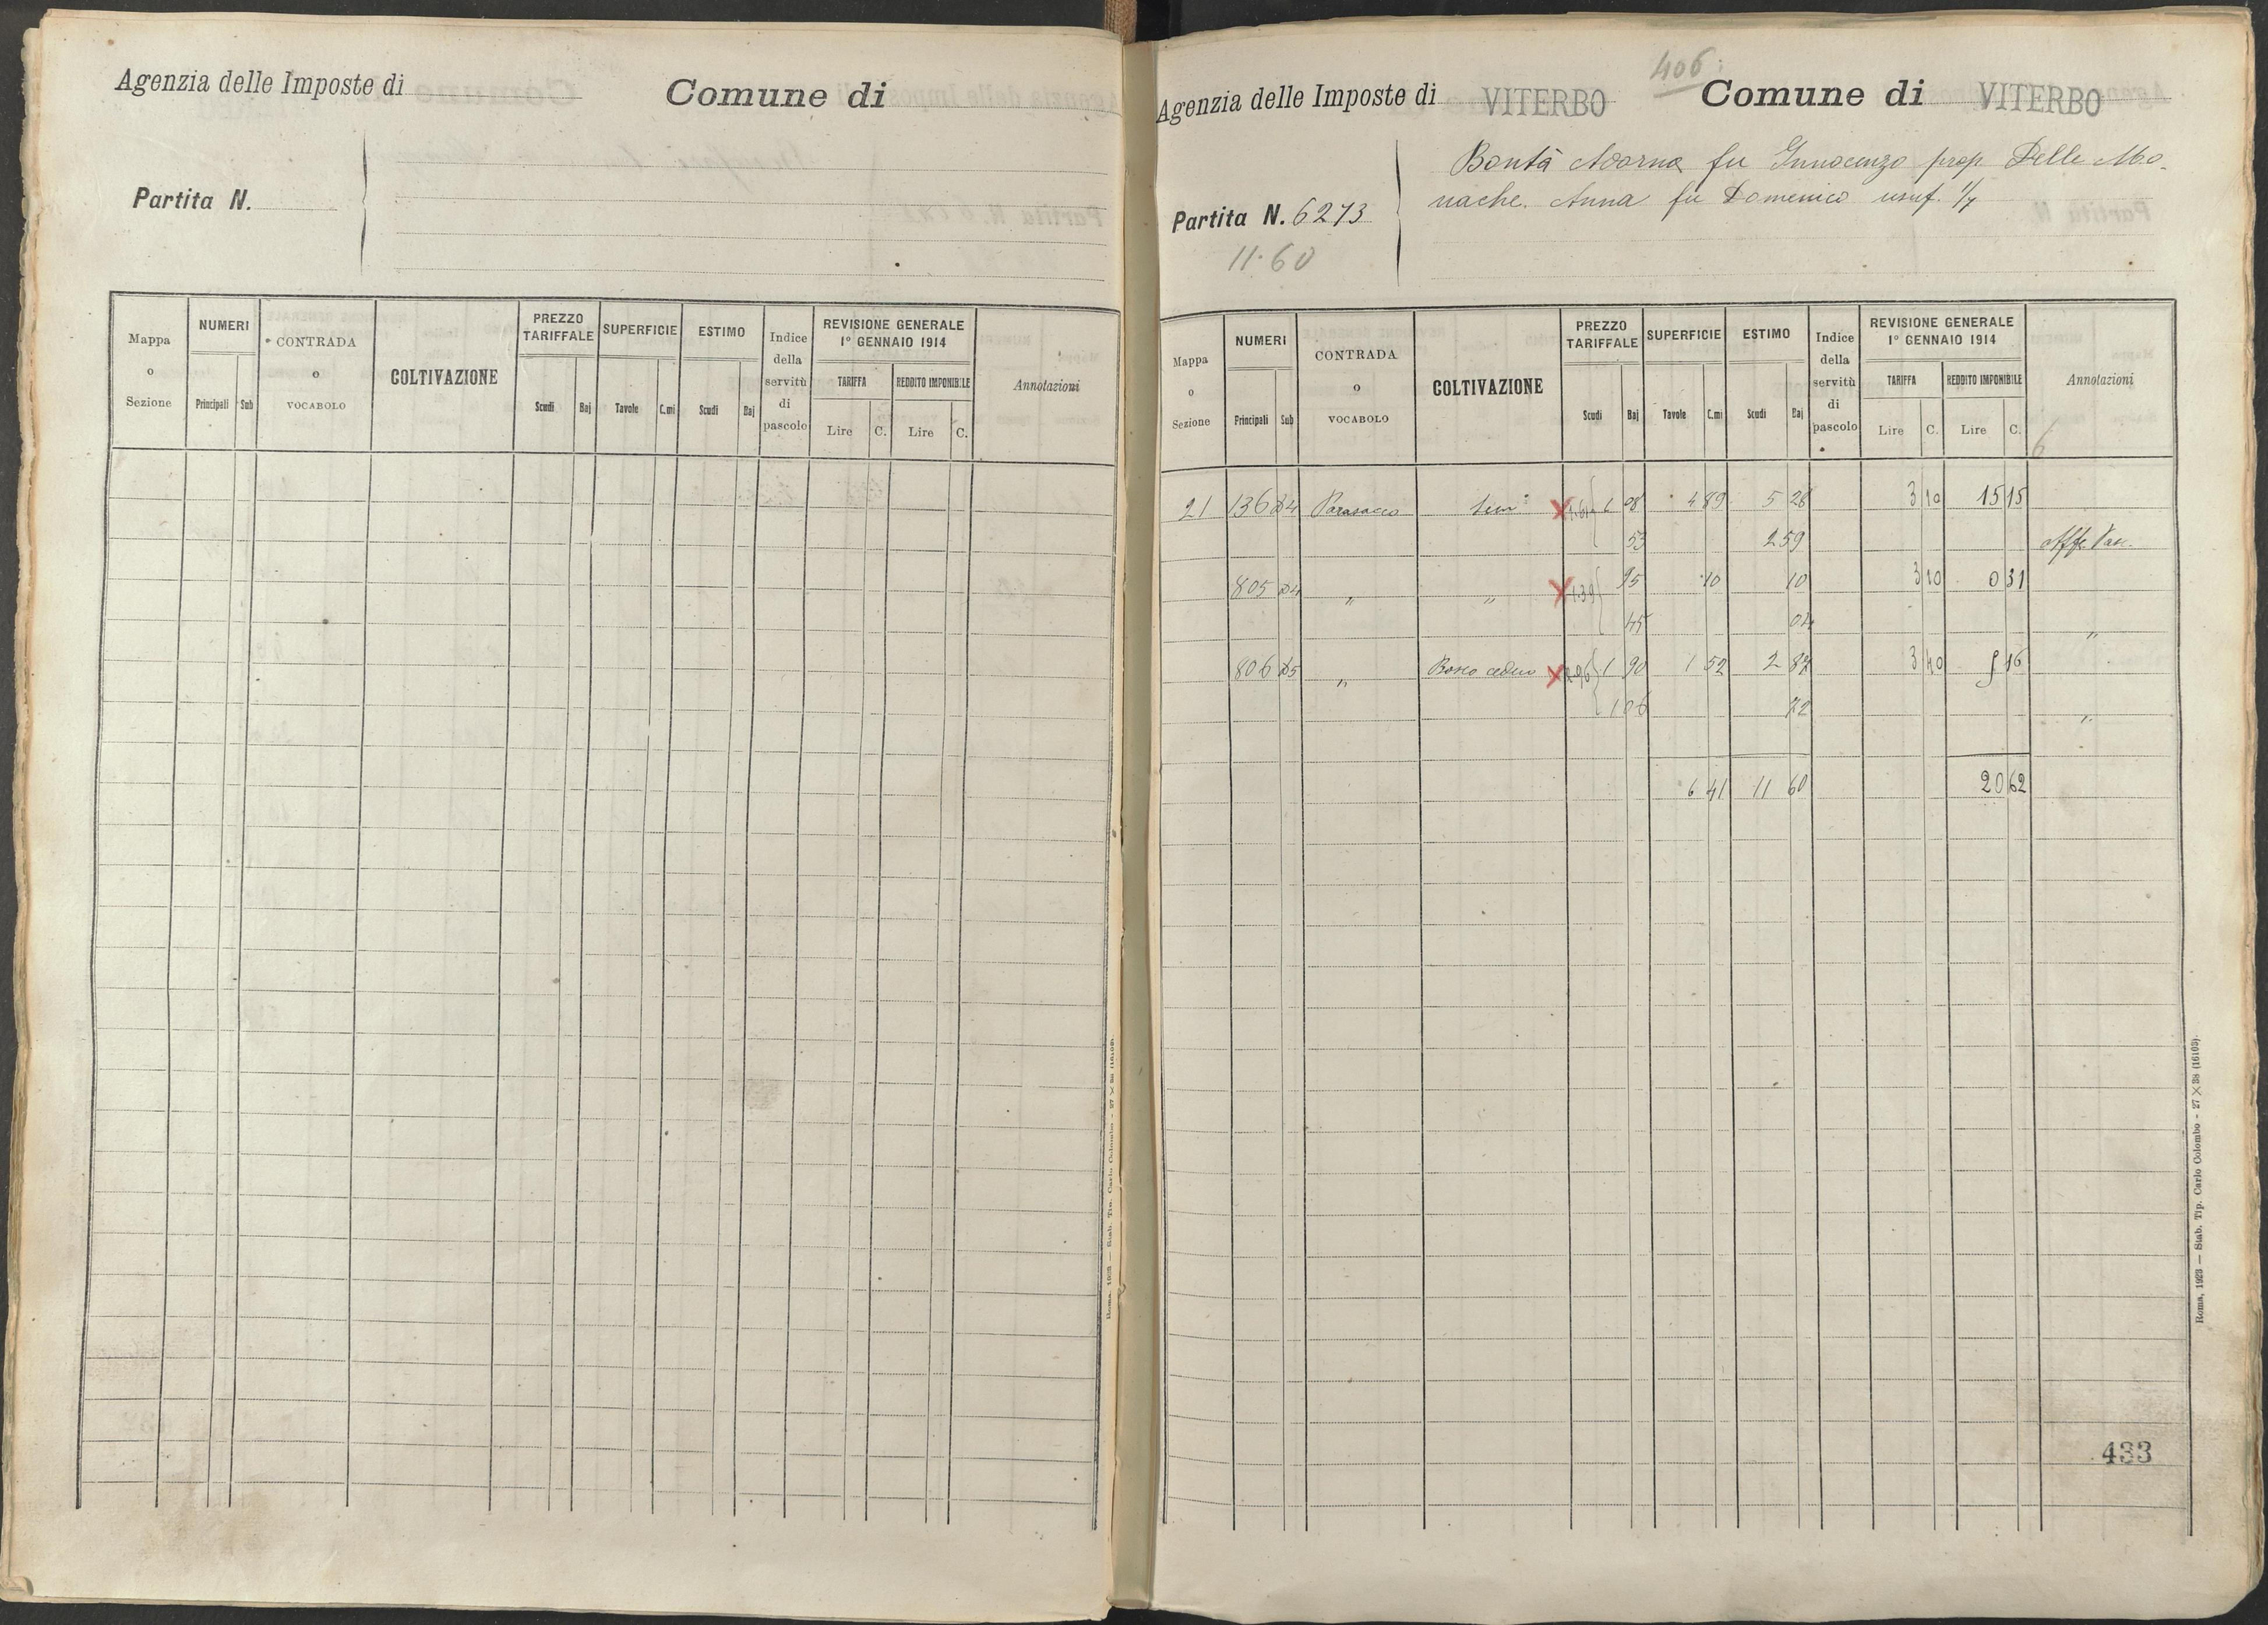 Agenzia delle Imposte di
Comune di
Partita N.
Mappa o Sezione
NUMERI
Principali Sub
CONTRADA o VOCABOLO
COLTIVAZIONE
PREZZO TARIFFALE
Scudi Baj
SUPERFICIE
Tavole C.mi
ESTIMO
Scudi Baj
Indice della servitù di pascolo
REVISIONE GENERALE
1° GENNAIO 1914
TARIFFA REDDITO IMPONIBILE
Lire C. Lire C.
Annotazioni
Roma, 1923 — Stab. Tip. Carlo Colombo - 27 X 38 (16103).
406
Agenzia delle Imposte di VITERBO Comune di VITERBO
Bontà Adorna fu Innocenzo prop Delle Mo-
nache Anna fu Domenico usuf. 1/7
Partita N. 6273
11.60
Mappa o Sezione
NUMERI
Principali Sub
CONTRADA o VOCABOLO
COLTIVAZIONE
PREZZO TARIFFALE
Scudi Baj
SUPERFICIE
Tavole C.mi
ESTIMO
Scudi Baj
Indice della servitù di pascolo
REVISIONE GENERALE
1° GENNAIO 1914
TARIFFA REDDITO IMPONIBILE
Lire C. Lire C.
Annotazioni
6
21 136 D4 Parasacco Sem° X 1.61 1 08 4 89 5 28 3 10 15 15
53 2 59 Aff. Pasc.
805 D4 " " X 1.39 95 10 10 3 10 0 31
45 04 "
806 D5 " Bosco ceduo X 2.96 1 90 1 52 2 87 3 40 5 16
1 06 72 "
6 41 11 60 20 62
433
Roma, 1923 — Stab. Tip. Carlo Colombo - 27 X 38 (16103).